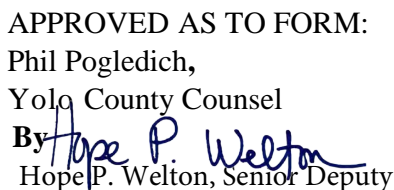 APPROVED AS TO FORM:
Phil Pogledich,
Yolo County Counsel
By Hope P. Welton
Hope P. Welton, Senior Deputy